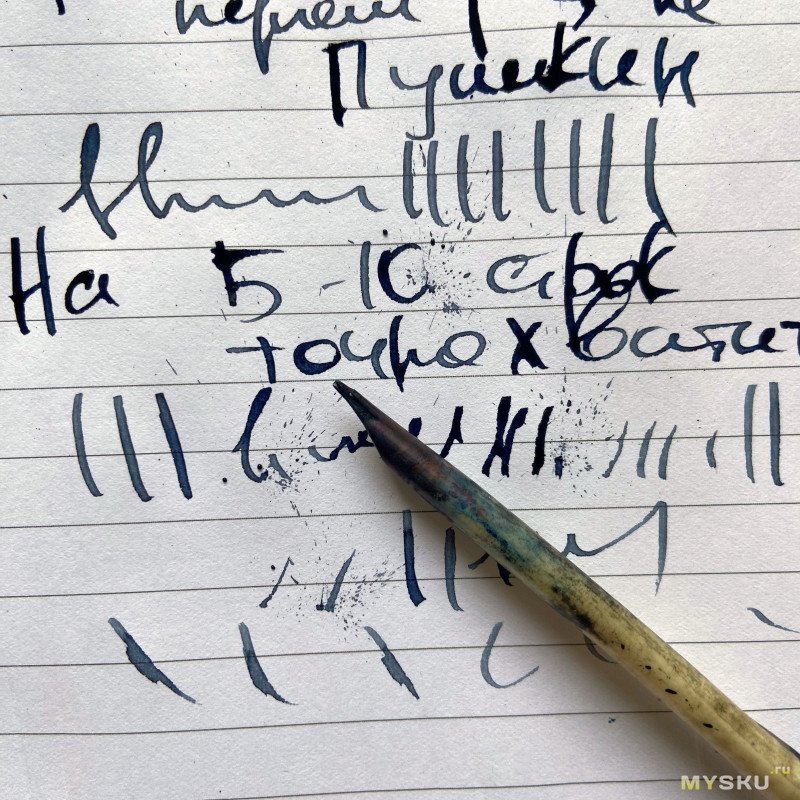 Пушкин
На 5-10 строк
точно хватит
MYSKU.ru